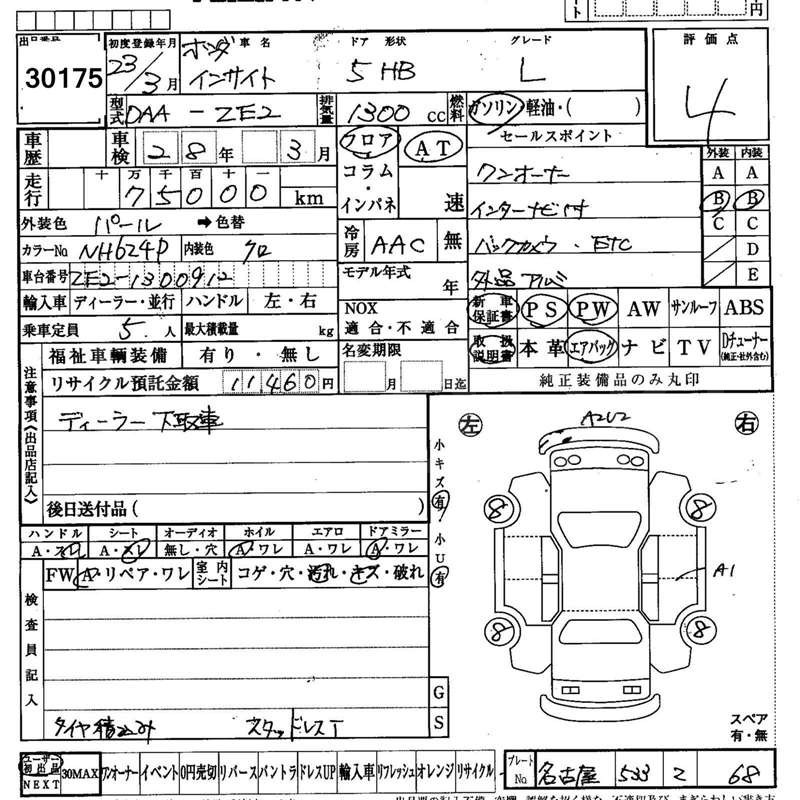 円
出品番号 初度登録年月 車名 ドア 形状 グレード 評価点
30175 23/3月 ホンダ インサイト 5 HB L 4
型式 DAA - ZE2 排気量 1300 cc 燃料 ガソリン・軽油・( )
車歴 車検 28年 3月 フロア AT セールスポイント 外装 内装
走行 十 万 千 百 十 一 コラム・インパネ 速 ワンオーナー A A
75000 km インターナビ付 B B
外装色 パール ➡色替 冷房 AAC 無 バックカメラ・ETC C C
カラーNo NH624P 内装色 クロ モデル年式 年 外品アルミ D
車台番号 ZE2-1300912 E
輸入車 ディーラー・並行 ハンドル 左・右 NOX 適合・不適合 新車保証書 PS PW AW サンルーフ ABS
乗車定員 5人 最大積載量 kg 取扱説明書 本革 エアバッグ ナビ TV Dチューナー (純正・社外含む)
福祉車輌装備 有り・無し 名変期限 月 日迄 純正装備品のみ丸印
リサイクル預託金額 11460円
注意事項《出品店記入》 ディーラー下取車
後日送付品 ( )
左 A2U2 右
小キズ有 小U有
8 8
A1
8 8
スペア 有・無
ハンドル シート オーディオ ホイル エアロ ドアミラー
A・スレ A・スレ 無し・穴 A・ワレ A・ワレ A・ワレ
FW A・リペア・ワレ 室内シート コゲ・穴・汚れ・キズ・破れ
検査員記入
G
タイヤ積込み スタッドレスT S
ユーザー初出品 NEXT 30MAX ワンオーナー イベント 0円売切 リバース バントラ ドレスUP 輸入車 リフレッシュ オレンジ リサイクル プレートNo 名古屋 533 ナ 68